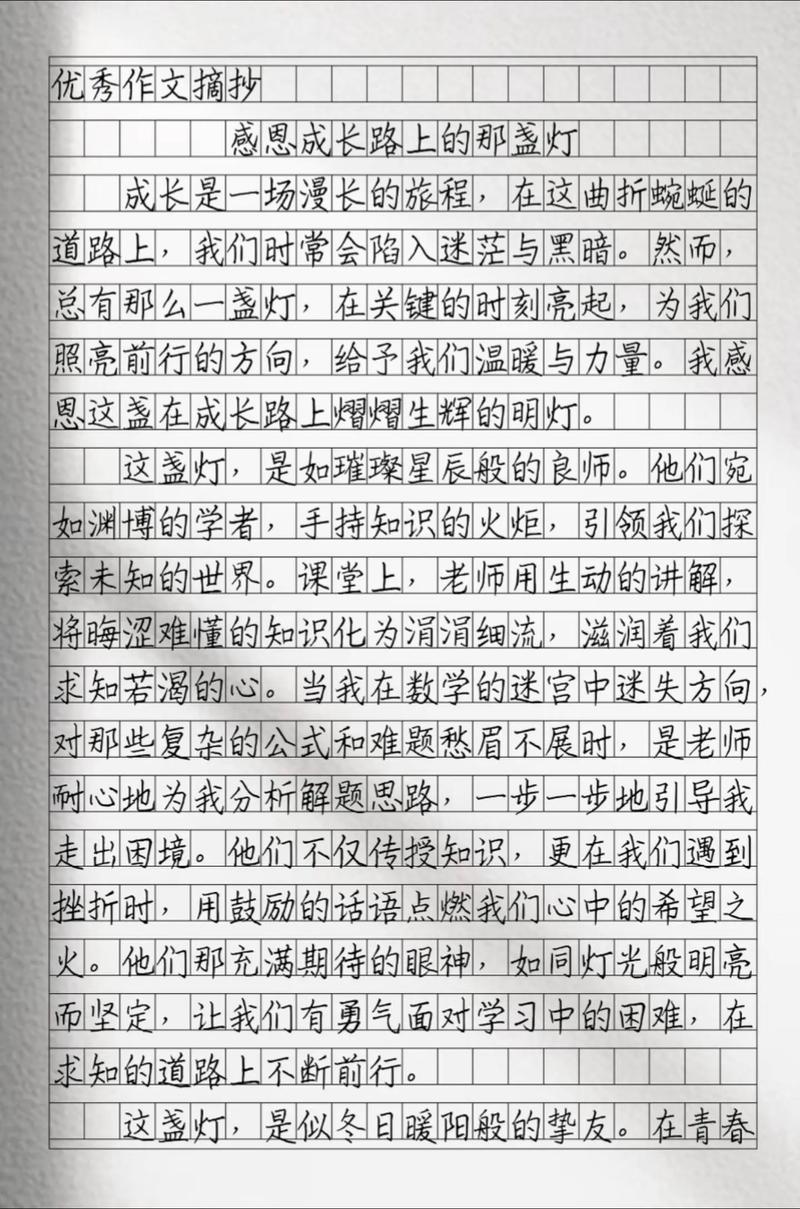 优秀作文摘抄
感恩成长路上的那盏灯
成长是一场漫长的旅程，在这曲折蜿蜒的
道路上，我们时常会陷入迷茫与黑暗。然而，
总有那么一盏灯，在关键的时刻亮起，为我们
照亮前行的方向，给予我们温暖与力量。我感
恩这盏在成长路上熠熠生辉的明灯。
这盏灯，是如璀璨星辰般的良师。他们宛
如渊博的学者，手持知识的火炬，引领我们探
索未知的世界。课堂上，老师用生动的讲解，
将晦涩难懂的知识化为涓涓细流，滋润着我们
求知若渴的心。当我在数学的迷宫中迷失方向，
对那些复杂的公式和难题愁眉不展时，是老师
耐心地为我分析解题思路，一步一步地引导我
走出困境。他们不仅传授知识，更在我们遇到
挫折时，用鼓励的话语点燃我们心中的希望之
火。他们那充满期待的眼神，如同灯光般明亮
而坚定，让我们有勇气面对学习中的困难，在
求知的道路上不断前行。
这盏灯，是似冬日暖阳般的挚友。在青春